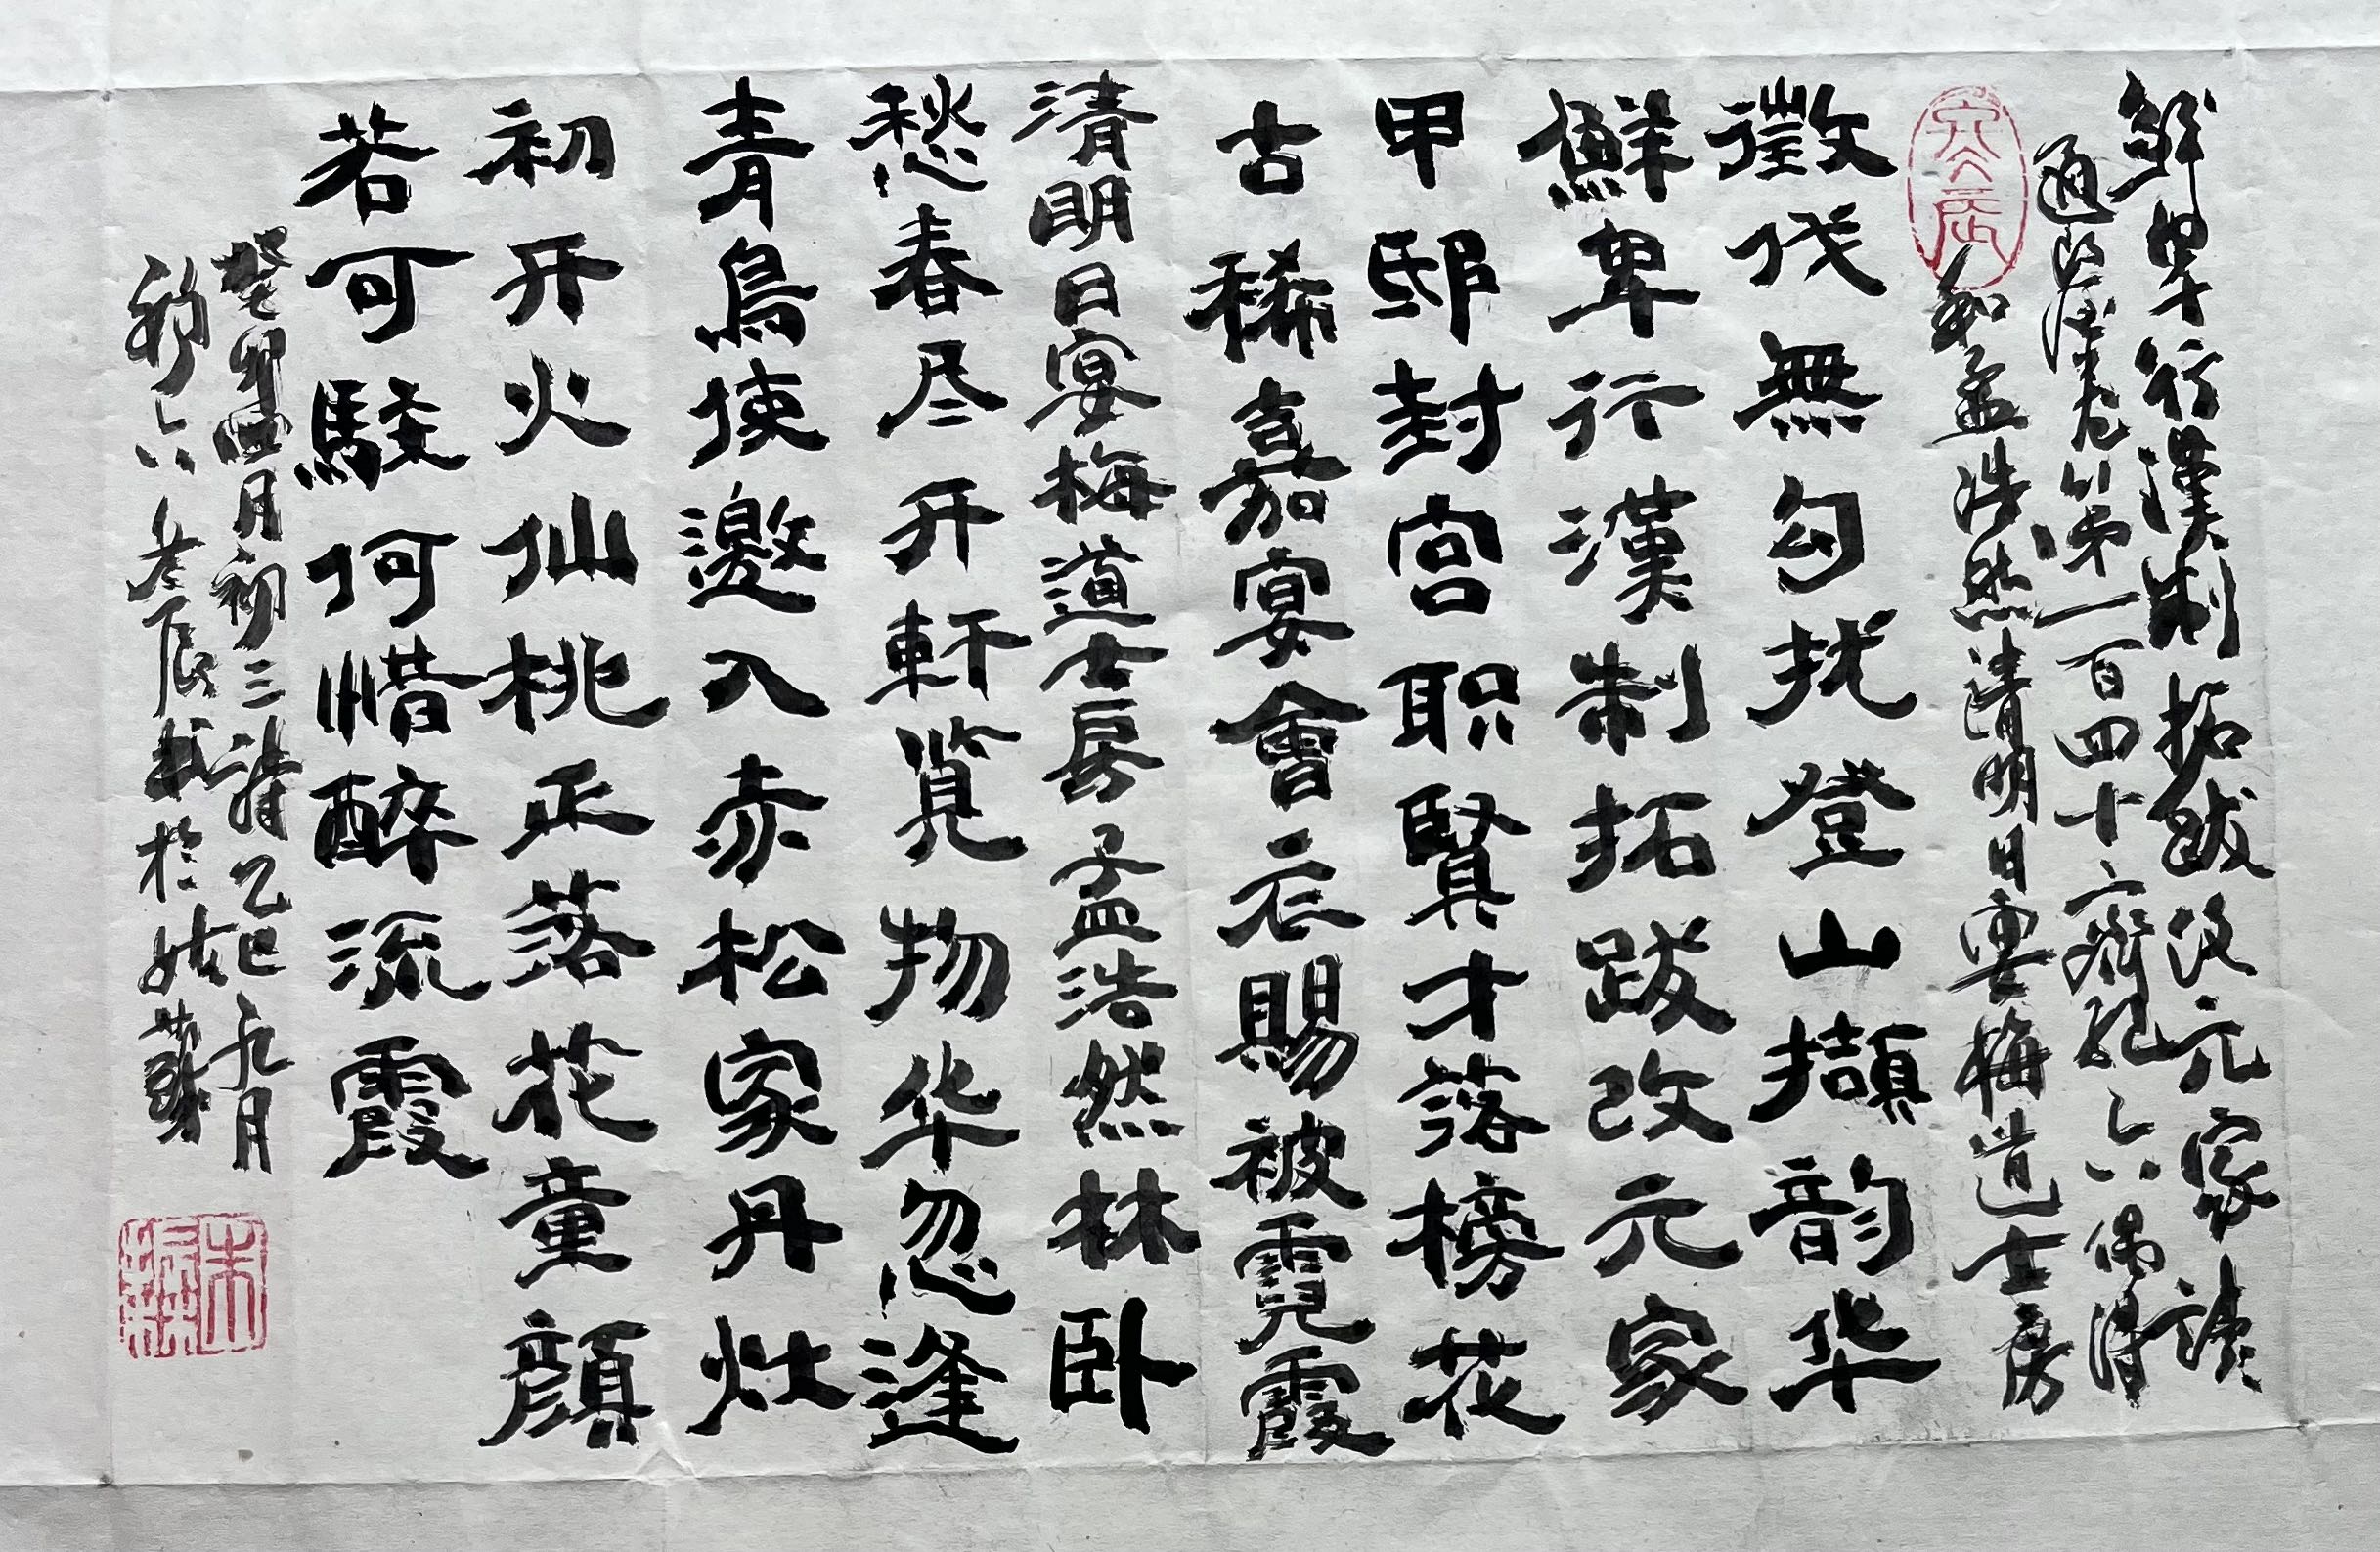 鲜卑行漢制拓跋改元家 读
通鉴卷第一百四十 齐纪六偶得
和孟浩然清明日宴梅道士房
徵伐無勾扰登山擷韵华
鮮卑行漢制拓跋改元家
甲邸封宫职賢才落榜花
古稀嘉宴會衣賜被霓霞
清明日宴梅道士房 孟浩然 林卧
愁春尽开軒覧物华忽逢
青鳥使邀入赤松家丹灶
初开火仙桃正落花童顔
若可駐何惜醉流霞
癸卯四月初三 詩 乙巳九月
穆六 辰 於姑蘇